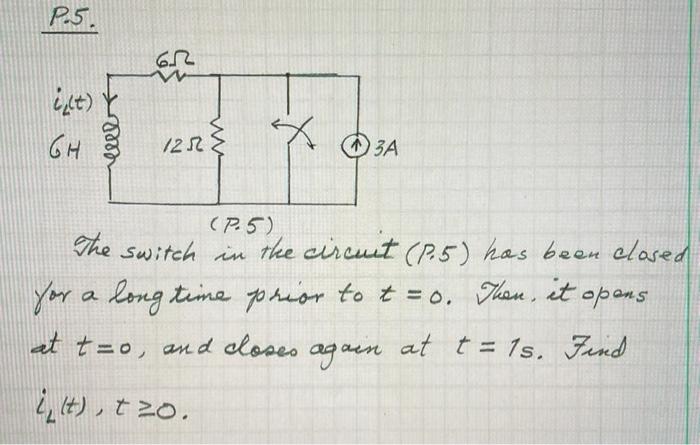 P.5.
6Ω
i_L(t)
6H
12Ω
3A
(P.5)
The switch in the circuit (P.5) has been closed
for a long time prior to t = 0. Then, it opens
at t=0, and closes again at t = 1s. Find
i_L(t), t ≥ 0.